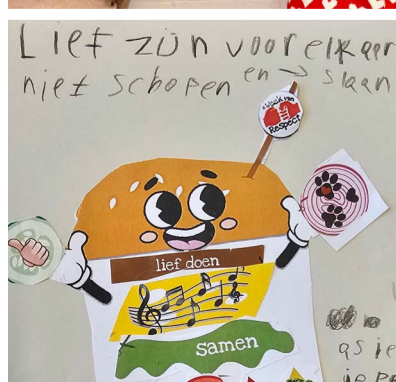 Lief zijn voor elkaar
niet schopen en → slaan
Respect
lief doen
samen
as je
je pe